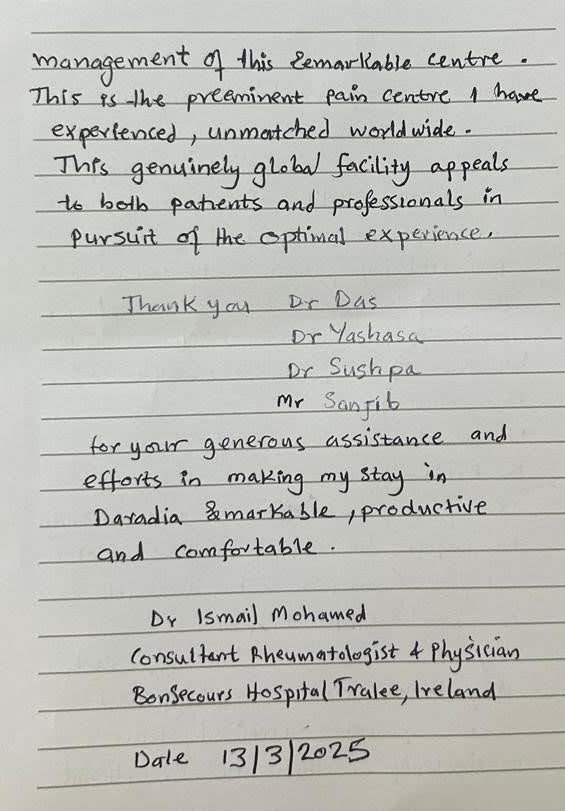 management of this Remarkable centre.
This is the preeminent pain centre I have
experienced, unmatched worldwide.
This genuinely global facility appeals
to both patients and professionals in
pursuit of the optimal experience.
Thank you Dr Das
Dr Yashasa
Dr Sushpa
Mr Sanjib
for your generous assistance and
efforts in making my stay in
Daradia Remarkable, productive
and comfortable.
Dr Ismail Mohamed
Consultant Rheumatologist & Physician
BonSecours Hospital Tralee, Ireland
Date 13/3/2025